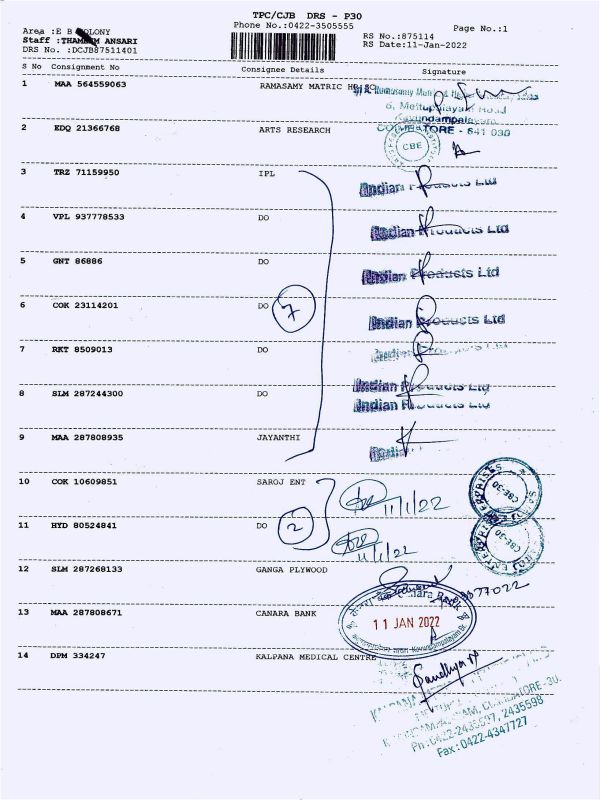 TPC/CJB DRS - P30
Phone No.:0422-3505555
Page No.:1
Area :E B COLONY
Staff :THAMEEM ANSARI
DRS No. :DCJB87511401
RS No.:875114
RS Date:11-Jan-2022
S No Consignment No Consignee Details Signature
1 MAA 564559063 RAMASAMY MATRIC HR SC
6, Mettupalayam Road
Kavundampalayam
COIMBATORE - 641 030
2 EDQ 21366768 ARTS RESEARCH
CBE
3 TRZ 71159950 IPL
Indian Products Ltd
4 VPL 937778533 DO
Indian Products Ltd
5 GNT 86886 DO
Indian Products Ltd
6 COK 23114201 DO 7
Indian Products Ltd
7 RKT 8509013 DO
Indian Products Ltd
8 SLM 287244300 DO
Indian Products Ltd
Indian Products Ltd
9 MAA 287808935 JAYANTHI
Indian
10 COK 10609851 SAROJ ENT
11/1/22
CBE-30
11 HYD 80524841 DO 2
11/1/22
CBE-30
12 SLM 287268133 GANGA PLYWOOD
13 MAA 287808671 CANARA BANK
Canara Bank
11 JAN 2022
14 DPM 334247 KALPANA MEDICAL CENTRE
KALPANA
COIMBATORE-30.
Ph: 0422-2435597, 2435598
Fax: 0422-4347727